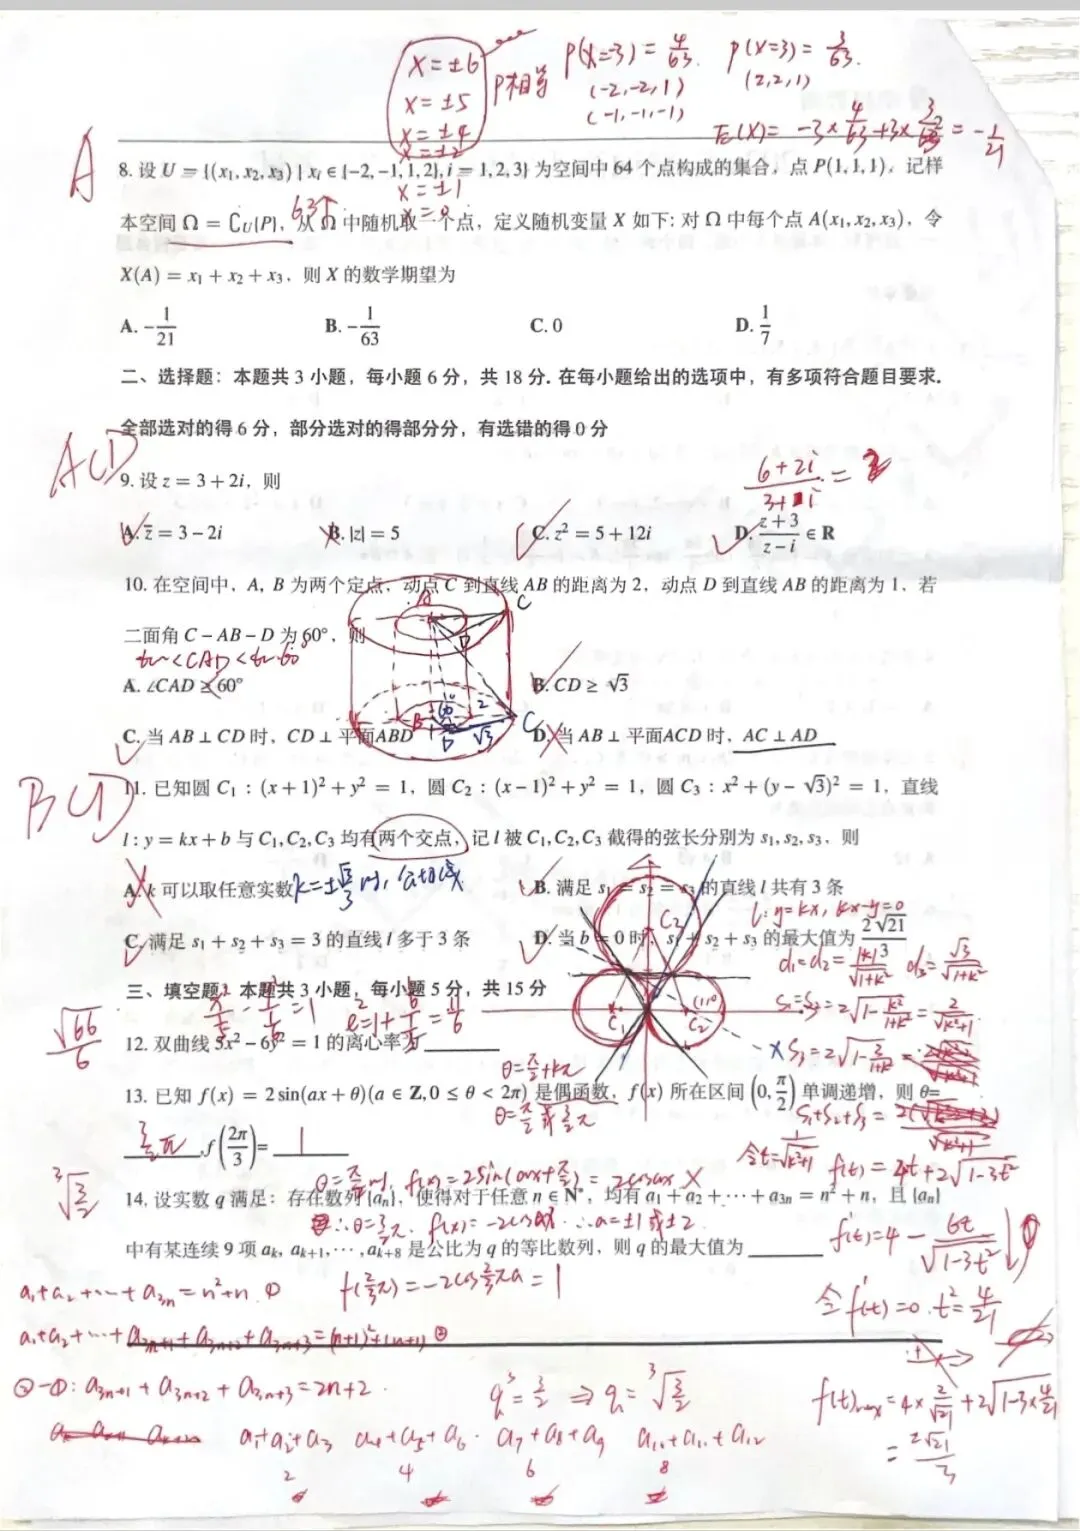 X=±6
X=±5
X=±4
X=±2
X=±1
X=0
P相等
P(X=-3)=4/63
(-2,-2,1)
(-1,-1,-1)
P(X=3)=3/63.
(2,2,1)
E(X)= -3×4/63+3×3/63 = -1/21
A
8. 设 U = {(x₁, x₂, x₃) | xᵢ ∈ {-2, -1, 1, 2}, i = 1, 2, 3} 为空间中 64 个点构成的集合，点 P(1, 1, 1)，记样
63个
本空间 Ω = ∁U{P}，从 Ω 中随机取一个点，定义随机变量 X 如下: 对 Ω 中每个点 A(x₁, x₂, x₃)，令
X(A) = x₁ + x₂ + x₃，则 X 的数学期望为
A. -1/21 B. -1/63 C. 0 D. 1/7
二、选择题：本题共 3 小题，每小题 6 分，共 18 分. 在每小题给出的选项中，有多项符合题目要求.
全部选对的得 6 分，部分选对的得部分分，有选错的得 0 分
ACD
9. 设 z = 3 + 2i，则
6+2i/3+i = 2
A. z̄ = 3 - 2i B. |z| = 5 C. z² = 5 + 12i D. z+3/z-i ∈ R
10. 在空间中，A, B 为两个定点，动点 C 到直线 AB 的距离为 2，动点 D 到直线 AB 的距离为 1，若
二面角 C - AB - D 为 60°，则
A. ∠CAD ≥ 60° B. CD ≥ √3
C. 当 AB ⊥ CD 时，CD ⊥ 平面ABD D. 当 AB ⊥ 平面ACD 时，AC ⊥ AD
A
C
D
B
2
60°
C
D
√3
BCD
11. 已知圆 C₁ : (x + 1)² + y² = 1，圆 C₂ : (x - 1)² + y² = 1，圆 C₃ : x² + (y - √3)² = 1，直线
l : y = kx + b 与 C₁, C₂, C₃ 均有两个交点，记 l 被 C₁, C₂, C₃ 截得的弦长分别为 s₁, s₂, s₃，则
A. k 可以取任意实数 B. 满足 s₁ = s₂ = s₃ 的直线 l 共有 3 条
k=±√3/3时，
C. 满足 s₁ + s₂ + s₃ = 3 的直线 l 多于 3 条 D. 当 b = 0 时，s₁ + s₂ + s₃ 的最大值为 2√21/3
l: y=kx, kx-y=0
d₁=d₂=|k|/√1+k² d₃=√3/√1+k²
S₁=S₂=2√1-k²/1+k² = 2/√k²+1
S₃=2√1-3/1+k²
S₁+S₂+S₃ =
令t=1/√k²+1 f(t)=4t+2√1-3t²
f'(t)=4-6t/√1-3t²
令f'(t)=0. t²=4/21
f(t)max=4×2/√21+2√1-3×4/21
=2√21/3
C₃
C₁
C₂
三、填空题：本题共 3 小题，每小题 5 分，共 15 分
√66/6
12. 双曲线 5x² - 6y² = 1 的离心率为
θ=π/2+kπ
13. 已知 f(x) = 2 sin(ax + θ)(a ∈ Z, 0 ≤ θ < 2π) 是偶函数，f(x) 所在区间 (0, π/2) 单调递增，则 θ=
θ=π/2或3/2π
3/2π , f(2π/3)= 1
θ=π/2时，f(x)=2sin(ax+π/2)=2cosax X
³√3/2
14. 设实数 q 满足：存在数列 {aₙ}，使得对于任意 n ∈ N*，均有 a₁ + a₂ + ⋯ + a₃ₙ = n² + n，且 {aₙ}
∴θ=3/2π, f(x)=-2cosax ∴a=±1或±2.
中有某连续 9 项 aₖ, aₖ₊₁, ⋯, aₖ₊₈ 是公比为 q 的等比数列，则 q 的最大值为
f(2/3π)=-2cos2/3πa=1
a₁+a₂+⋯+a₃ₙ=n²+n ①
a₁+a₂+⋯+a₃ₙ₊₁+a₃ₙ₊₂+a₃ₙ₊₃=(n+1)²+(n+1) ②
②-①: a₃ₙ₊₁+a₃ₙ₊₂+a₃ₙ₊₃=2n+2.
q³=3/2 ⇒ q=³√3/2
a₁+a₂+a₃ a₄+a₅+a₆. a₇+a₈+a₉ a₁₀+a₁₁+a₁₂
2 4 6 8